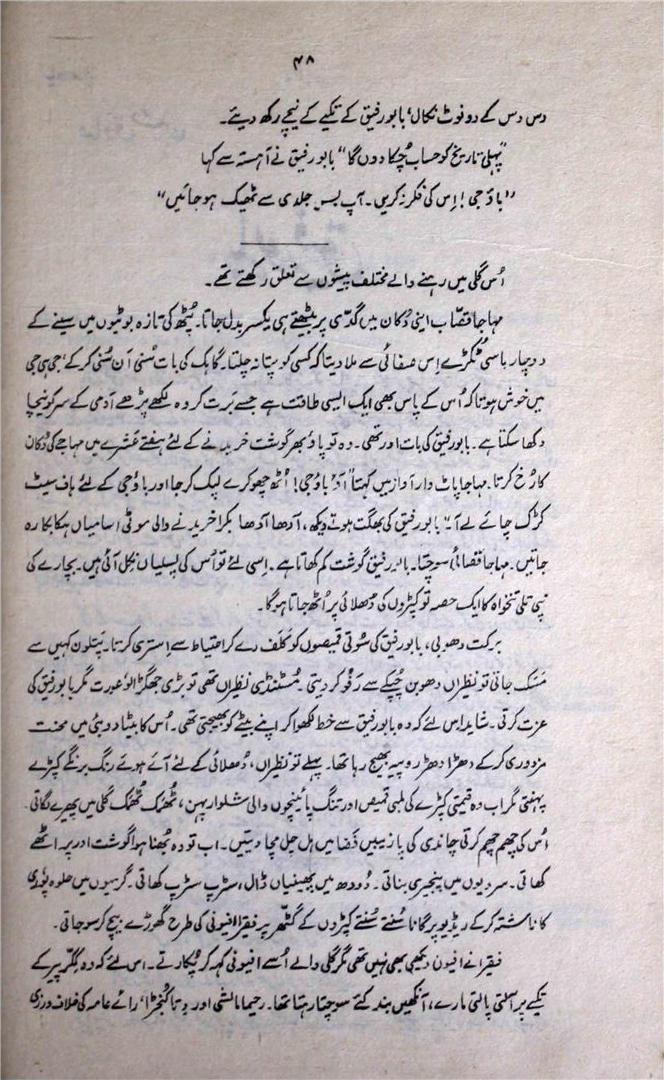 ۴۸
دس دس کے دو نوٹ نکال، بابو رفیق کے تکیے کے نیچے رکھ دیئے۔
"پہلی تاریخ کو حساب چُکا دوں گا" بابو رفیق نے آہستہ سے کہا
"باؤ جی! اِس کی فکر نہ کریں۔ آپ بس جلدی سے ٹھیک ہو جائیں"
اُس گلی میں رہنے والے مختلف پیشوں سے تعلق رکھتے تھے۔
مہاجا قصّاب اپنی دُکان میں گدّی پر بیٹھتے ہی یکسر بدل جاتا۔ پُٹھ کی تازہ بوٹیوں میں سینے کے
دو چار باسی ٹکڑے اِس صفائی سے ملا دیتا کہ کسی کو پتا نہ چلتا۔ گاہک کی بات سُنی اَن سُنی کر کے، جی ہی جی
میں خوش ہوتا کہ اُس کے پاس بھی ایک ایسی طاقت ہے جسے برت کر وہ لکھے پڑھے آدمی کے سر کو نیچا
دکھا سکتا ہے۔ بابو رفیق کی بات اور تھی۔ وہ تو پاؤ بھر گوشت خریدنے کے لئے ہفتے عشرے میں مہاجے کی دُکان
کا رُخ کرتا۔ مہاجا پاٹ دار آواز میں کہتا "آؤ باؤ جی! اُٹھ چھوکرے لپک کر جا اور باؤ جی کے لئے ہاف سیٹ
کڑک چائے لے آ۔" بابو رفیق کی بھگت ہوتے دیکھ، آدھا آدھا بکرا خریدنے والی موٹی اسامیاں ہکا بکا رہ
جاتیں۔ مہاجا قصائی سوچتا۔ بابو رفیق گوشت کم کھاتا ہے۔ اِسی لئے تو اُس کی پسلیاں نکل آئی ہیں۔ بچارے کی
نپی تلی تنخواہ کا ایک حصہ تو کپڑوں کی دھلائی پر اُٹھ جاتا ہو گا۔
برکت دھوبی، بابو رفیق کی سُوتی قمیصوں کو کلف دے کر احتیاط سے استری کرتا۔ پتلون کہیں سے
مَسک جاتی تو نظیراں دھوبن چُپکے سے رَفو کر دیتی۔ مُسٹنڈی نظیراں تھی تو بڑی جھگڑالو عورت مگر بابو رفیق کی
عزت کرتی۔ شاید اس لئے کہ وہ بابو رفیق سے خط لکھوا کر اپنے بیٹے کو بھیجتی تھی۔ اُس کا بیٹا دوبئی میں محنت
مزدوری کر کے دھڑا دھڑ روپیہ بھیج رہا تھا۔ پہلے تو نظیراں، دُھلائی کے لئے آئے ہوئے رنگ برنگے کپڑے
پہنتی مگر اب وہ قیمتی کپڑے کی لمبی قمیص اور تنگ پائینچوں والی شلوار پہن، ٹھُمک ٹھُمک گلی میں پھیرے لگاتی۔
اُس کی چھم چھم کرتی چاندی کی پازیبیں فَضا میں ہل چل مچا دیتیں۔ اب تو وہ بُھنا ہوا گوشت اور پراٹھے
کھاتی۔ سردیوں میں پنجیری بناتی۔ دُودھ میں پھینیاں ڈال، سٹرپ سٹرپ کھاتی۔ گرمیوں میں حلوہ پوُری
کا ناشتہ کر کے ریڈیو پر گانا سُنتے سُنتے کپڑوں کے گٹھر پر فقیرا افیونی کی طرح گھوڑے بیچ کر سو جاتی۔
فقیرا نے افیون دیکھی بھی نہیں تھی مگر گلی والے اُسے افیونی کہہ کر پُکارتے۔ اس لئے کہ وہ پیر کے
تکیے پر آلتی پالتی مارے، آنکھیں بند کئے سوچتا رہتا تھا۔ رحیما مالشی اور دِتا کُنجڑا، رائے عامہ کی خلاف ورزی